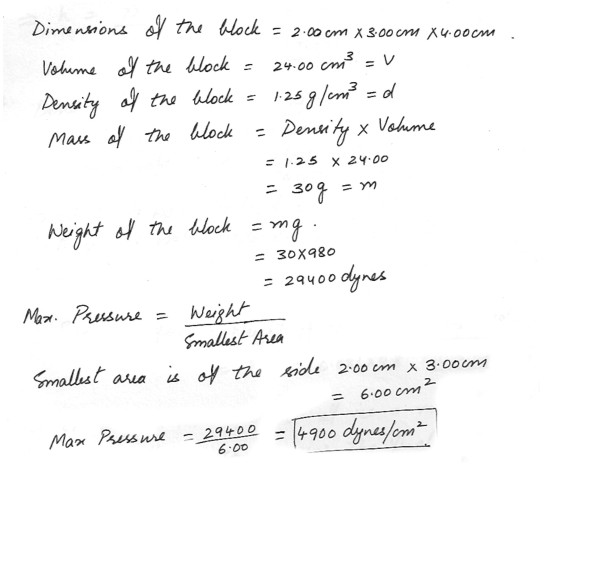 Dimensions of the block = 2.00 cm x 3.00 cm x 4.00 cm .
Volume of the block = 24.00 cm³ = V
Density of the block = 1.25 g/cm³ = d
Mass of the block = Density x Volume
= 1.25 x 24.00
= 30g = m
Weight of the block = mg .
= 30x980
= 29400 dynes
Max. Pressure = Weight
Smallest Area
Smallest area is of the side 2.00 cm x 3.00 cm
= 6.00 cm²
Max Pressure = 29400 = 4900 dynes/cm²
6.00